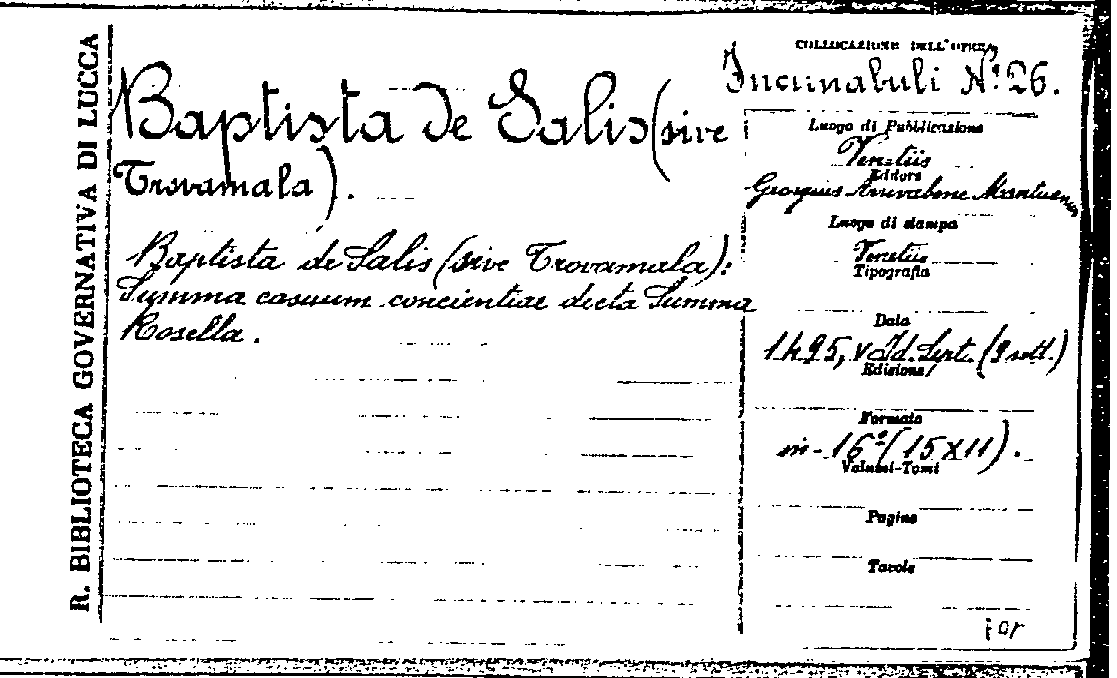 R. BIBLIOTECA GOVERNATIVA DI LUCCA
COLLOCAZIONE DELL'OPERA
Incunabuli N.º 26.
Baptista de Salis (sive
Trovamala).
Baptista de Salis (sive Trovamala):
Summa casuum concientiae dicta Summa
Rosella.
Luogo di Pubblicazione
Venetiis
Editore
Georgius Arrivabene Mantuanus
Luogo di stampa
Venetiis
Tipografia
Data
1495, V Id. Sept. (9 sett.)
Edizione
Formato
in-16º (15X11).
Volumi-Tomi
Pagine
Tavole